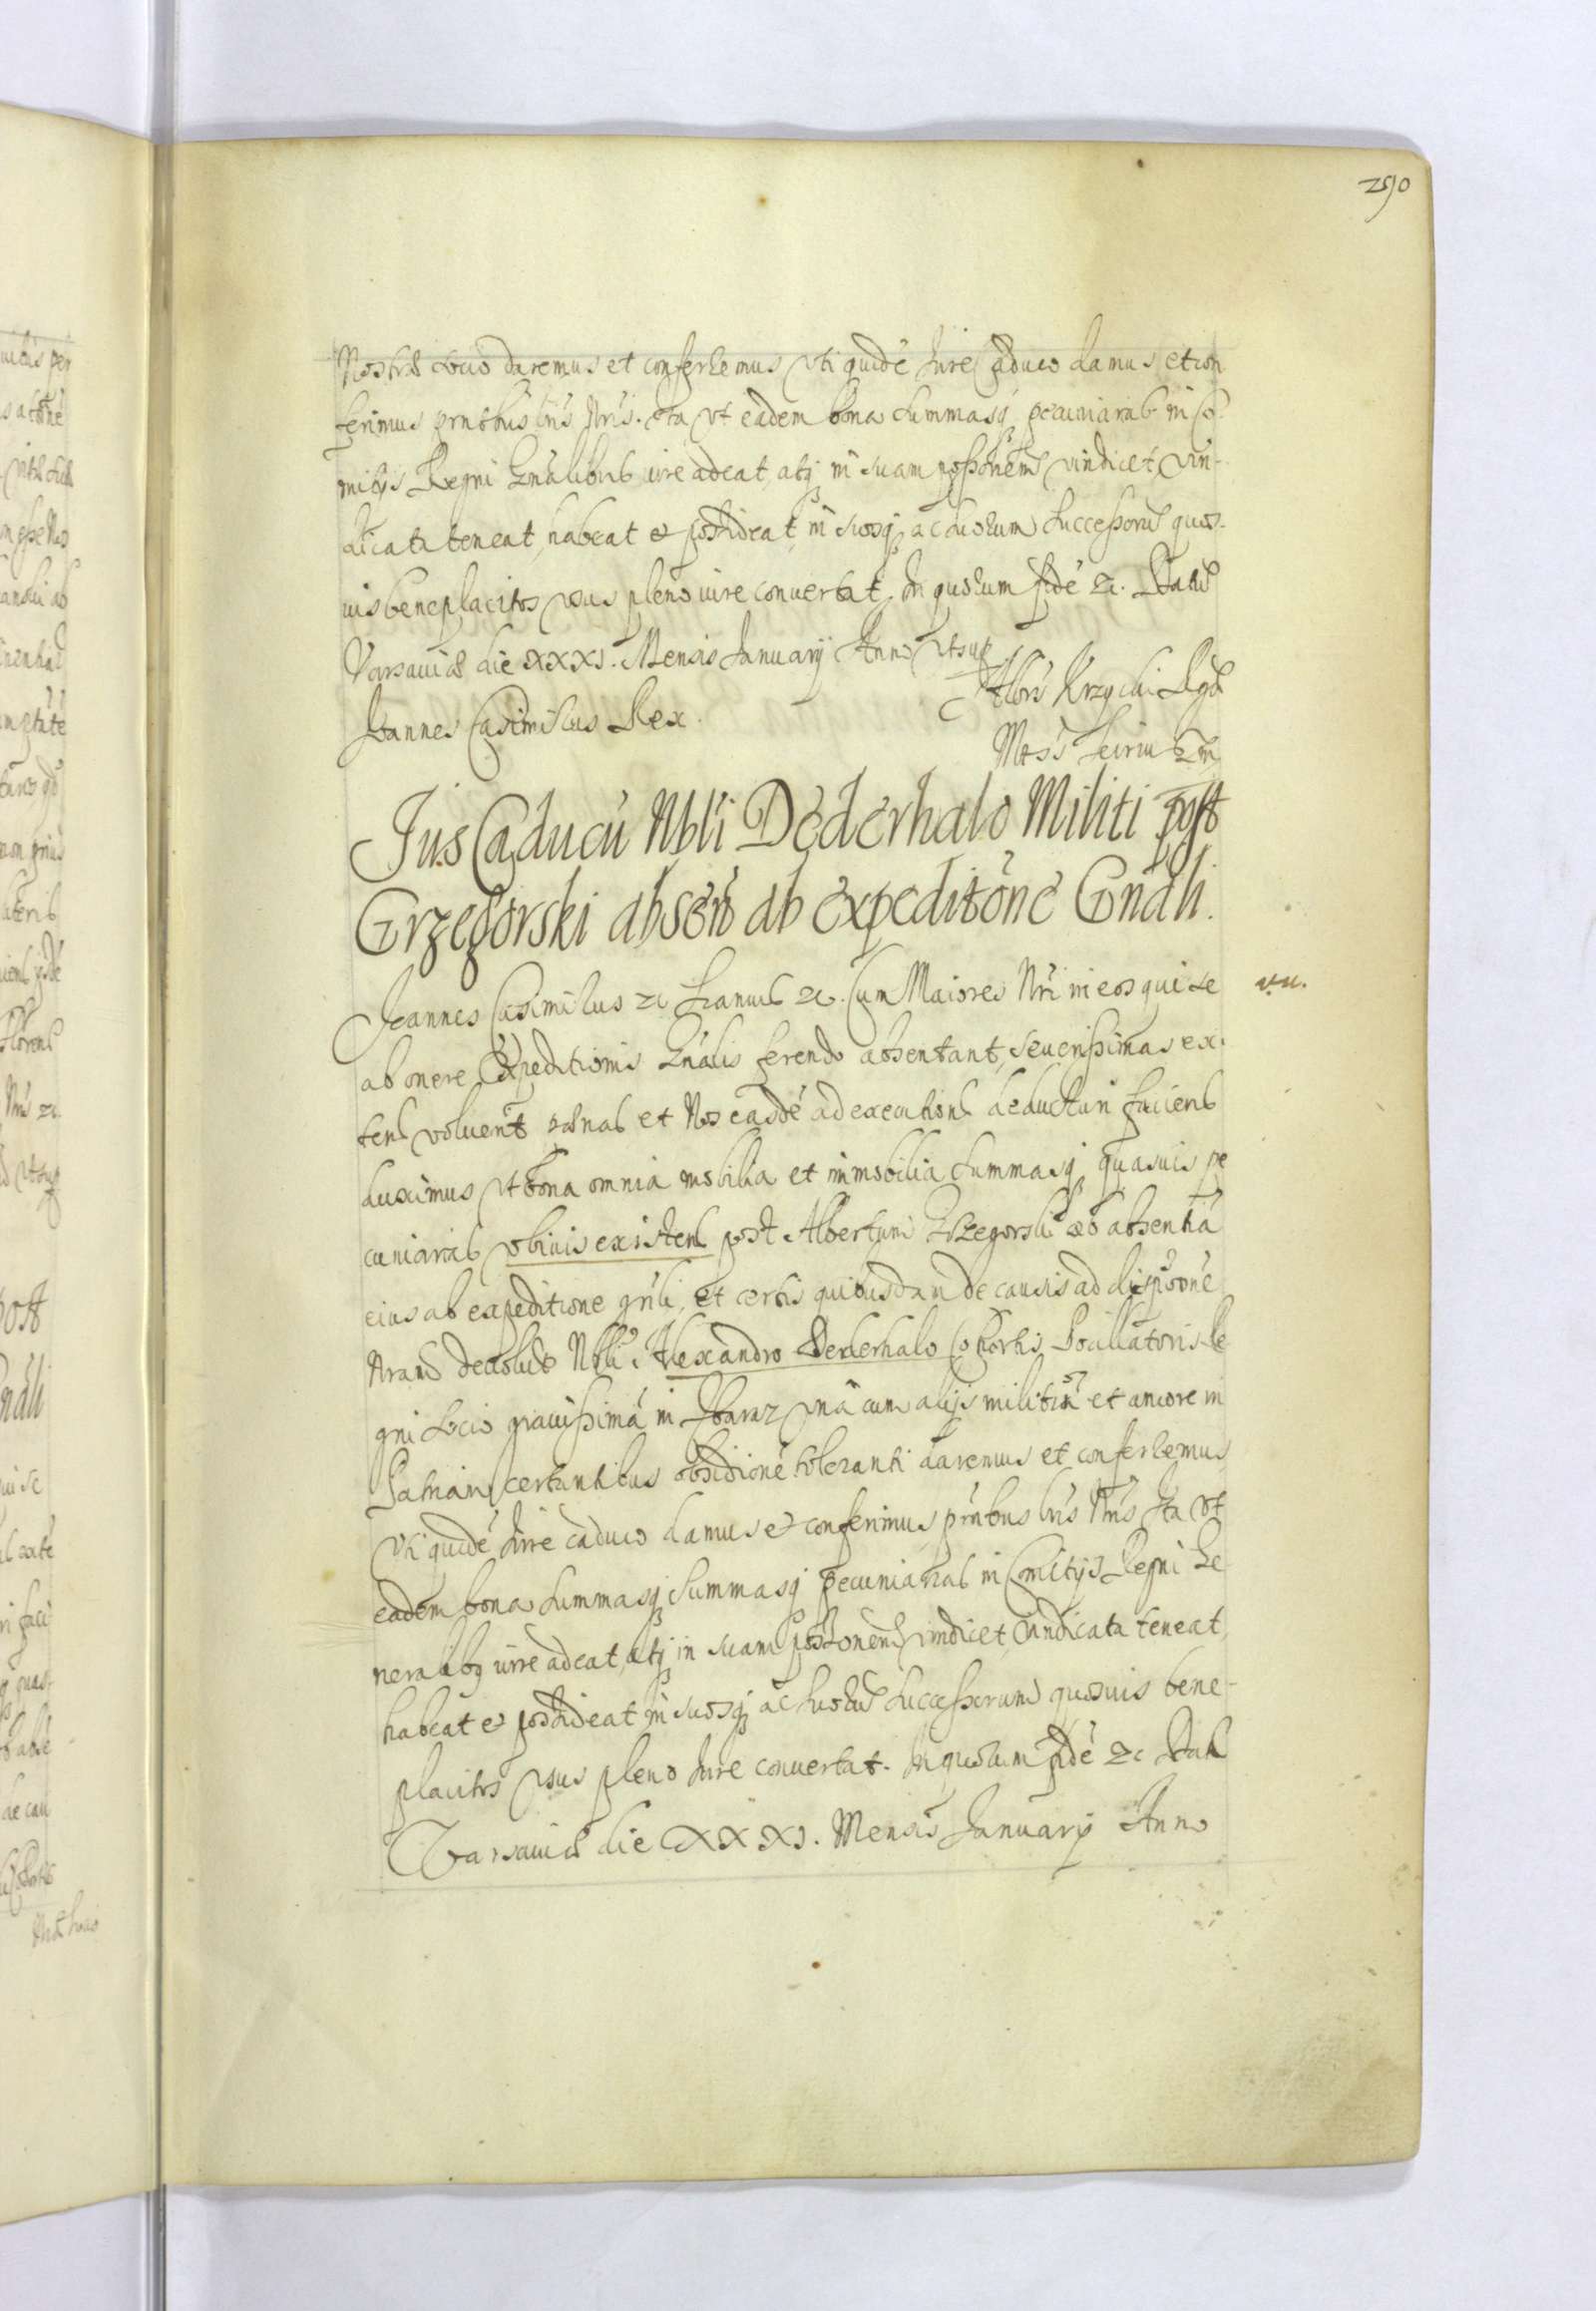 290
Nostræ Socio daremus et conferremus Vti quidē Jure Caduco damus et con
ferimus prntbus lris Nris. Ita vt eadem bona summasq pecuniarias in Co
mitijs Regni Gnalibus iure adeat, atq in suam possonem vindicet, vin-
dicata teneat, habeat et possideat, in suosq ac suorum successorum quos-
uis beneplacitos vsus pleno iure conuertat. In quorum fidē &c. Datū
Varsauiæ die XXXI. Mensis Januarij Anno Vtsup
Joannes Casimirus Rex.
Albrs Krzycki Rgd
Mtis Secrius mp
Jus Caducū Nbli Dederhalo Militi post
Grzegorski absen ab expeditōne Gnāli.
Joannes Casimirus &c Signams &c. Cum Maiores Nri in eos qui se
ab onere Expeditionis Gnalis ferendo absentant, seuerissimas ex-
tens voluerīt pœnas et Nos easdē ad executionē deductum faciens
duximus Vt bona omnia mobilia et immobilia summasq quasuis pe
cuniarias vbiuis existens post Albertum Grzegorski ob absentiā
eius ab expeditione gnli, et certis quibusdam de causis ad disposōnē
Nram deuoluto Nbli Alexandro Dederhalo Cohortis Pocillatoris Re
gni Socio grauissimā in Zbaraz vnā cum alijs militiā et amore in
Patriam certantibus obsidionē toleranti daremus et conferremus,
Vti quidē Jure caduco damus et conferimus prntbus lris Nris Ita Vt
eadem bona summasq summasq pecuniarias in Comitijs Regni Ge
neralibq iure adeat, atq in suam possonem vindicet, vindicata teneat,
habeat et possideat in suosq ac suorū Successorum quosuis bene-
placitos vsus pleno Jure conuertat. In quorum fidē &c Dat
Varsauiæ die XXXI. Mensis Januarij Anno